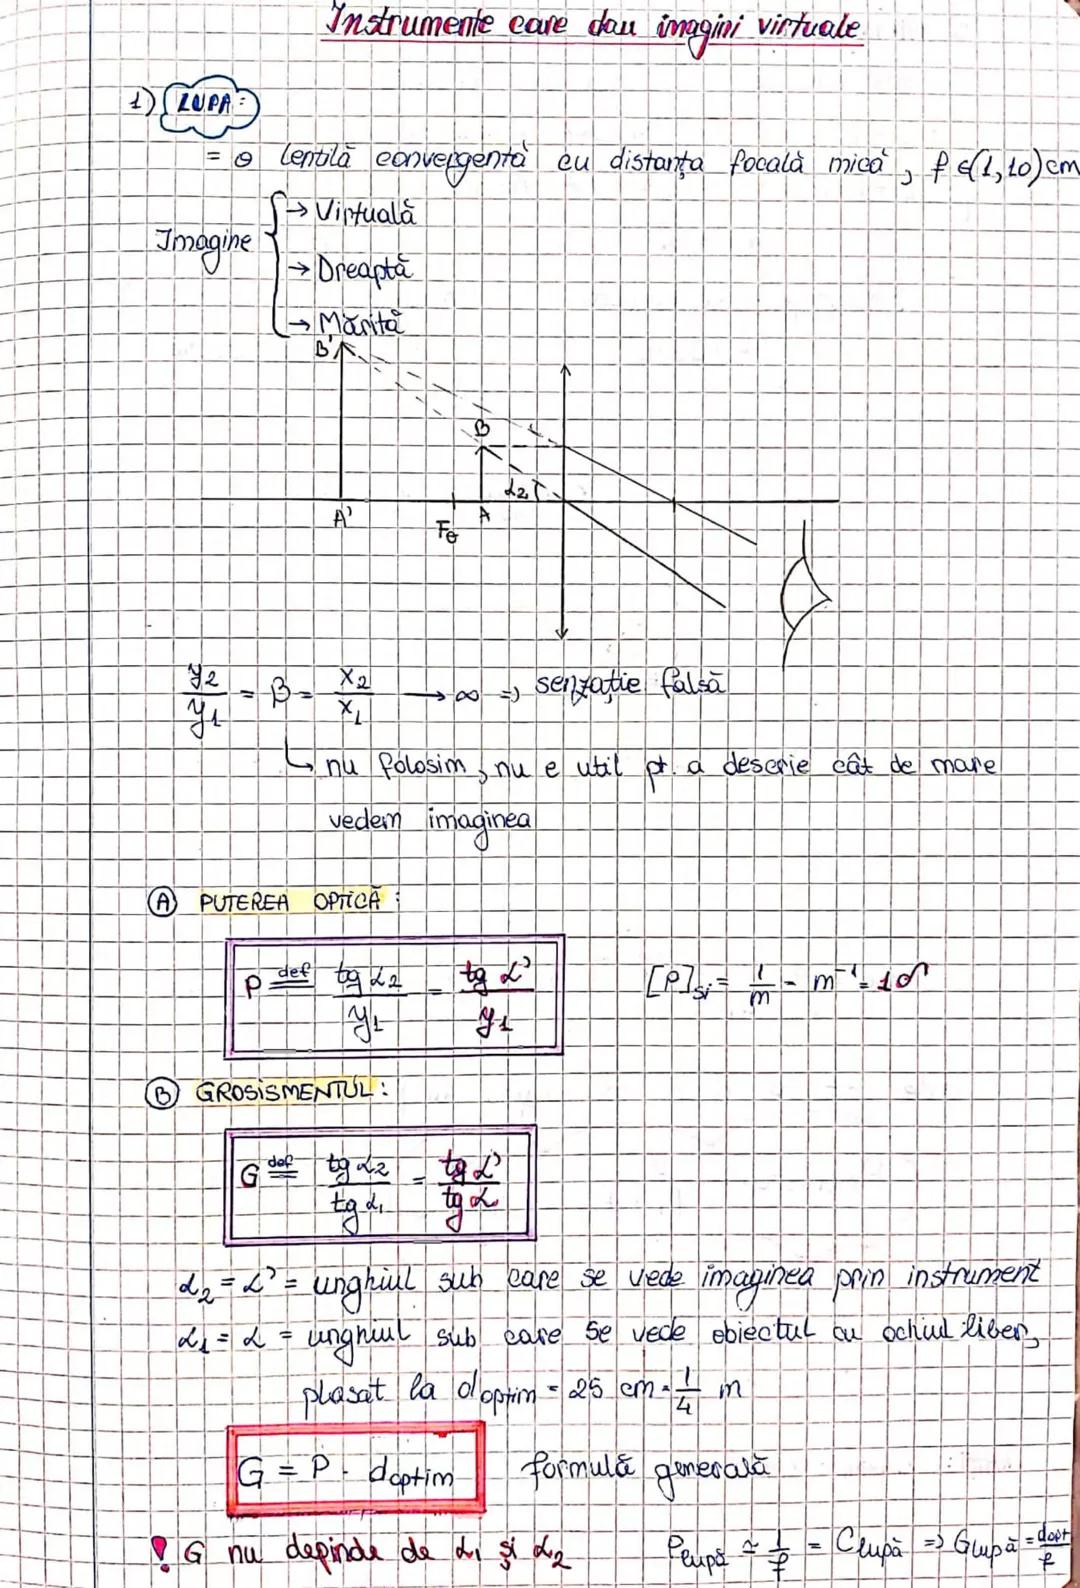 Instrumente care dau imagini virtuale
1) LUPA:
= o lentilă convergentă cu distanța focală mică, f ∈ (1,10) cm
Imagine { → Virtuală
→ Dreaptă
→ Mărită
B'
B
α₂
A' F₀ A
y₂/y₁ = β = x₂/x₁ → ∞ => senzație falsă
↳ nu folosim, nu e util pt. a descrie cât de mare
vedem imaginea
Ⓐ PUTEREA OPTICĂ:
P def= tg α₂/y₁ = tg α'/y₁ [P]si = 1/m = m⁻¹ = 1δ
Ⓑ GROSISMENTUL:
G def= tg α₂/tg α₁ = tg α'/tg α
α₂ = α' = unghiul sub care se vede imaginea prin instrument
α₁ = α = unghiul sub care se vede obiectul cu ochiul liber,
plasat la doptim = 25 cm = 1/4 m
G = P · doptim formulă generală
! G nu depinde de α₁ și α₂ Plupă ≃ 1/f = Clupă => Glupă = dopt/f